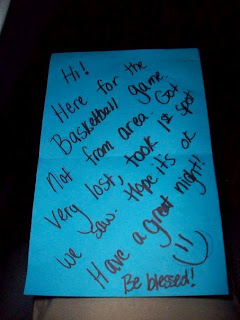 Hi!
Here for the
Basketball game.
Not from area. Got
very lost, took 1st spot
we saw. Hope it's ok
Have a great night!
Be blessed!